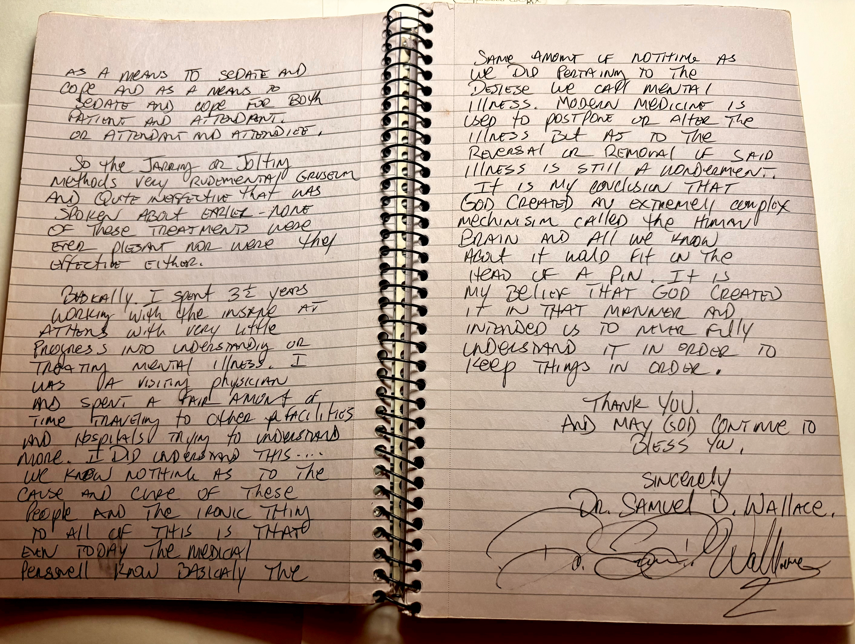 AS A MEANS TO SEDATE AND
COPE AND AS A MEANS TO
SEDATE AND COPE FOR BOTH
PATIENT AND ATTENDANT.
OR ATTENDANT AND ATTENDEE.
So the JARRING OR JOLTING
METHODS VERY RUDEMENTAL GRUSEUM
AND QUITE INEFFECTIVE THAT WAS
SPOKEN ABOUT EARLIER - NONE
OF THESE TREATMENTS WERE
EVER PLESANT NOR WERE THEY
EFFECTIVE EITHER.
BASICALLY. I SPENT 3½ YEARS
WORKING WITH the INSANE AT
ATHENS WITH VERY LITTLE
PROGRESS INTO UNDERSTANDING OR
TREATING MENTAL ILLNESS. I
WAS A VISITING PHYSICIAN
AND SPENT A FAIR AMOUNT OF
TIME TRAVELING TO OTHER FACILITIES
AND HOSPITALS TRYING TO UNDERSTAND
MORE. I DID UNDERSTAND THIS....
WE KNOW NOTHING AS TO THE
CAUSE AND CURE OF THESE
PEOPLE AND THE IRONIC THING
TO ALL OF THIS IS THAT
EVEN TODAY THE MEDICAL
PERSNELL KNOW BASICALY THE
SAME AMONT OF NOTHING AS
WE DID PERTAINING TO THE
DESIESE WE CALL MENTAL
ILLNESS. MODERN MEDICINE IS
USED TO POSTPONE OR ALTER THE
ILLNESS BUT AS TO THE
REVERSAL OR REMOVAL OF SAID
ILLNESS IS STILL A WONDERMENT.
IT IS MY CONCLUSION THAT
GOD CREATED AN EXTREMELY COMPLEX
MECHINISIM CALLED THE HUMAN
BRAIN AND ALL WE KNOW
ABOUT IT WOULD FIT ON THE
HEAD OF A PIN. IT IS
MY BELIEF THAT GOD CREATED
IT IN THAT MANNER AND
INTENDED US TO NEVER FULLY
UNDERSTAND IT IN ORDER TO
KEEP THINGS IN ORDER.
THANK YOU.
AND MAY GOD CONTINUE TO
BLESS YOU.
SINCERELY
DR. SAMUEL D. WALLACE.